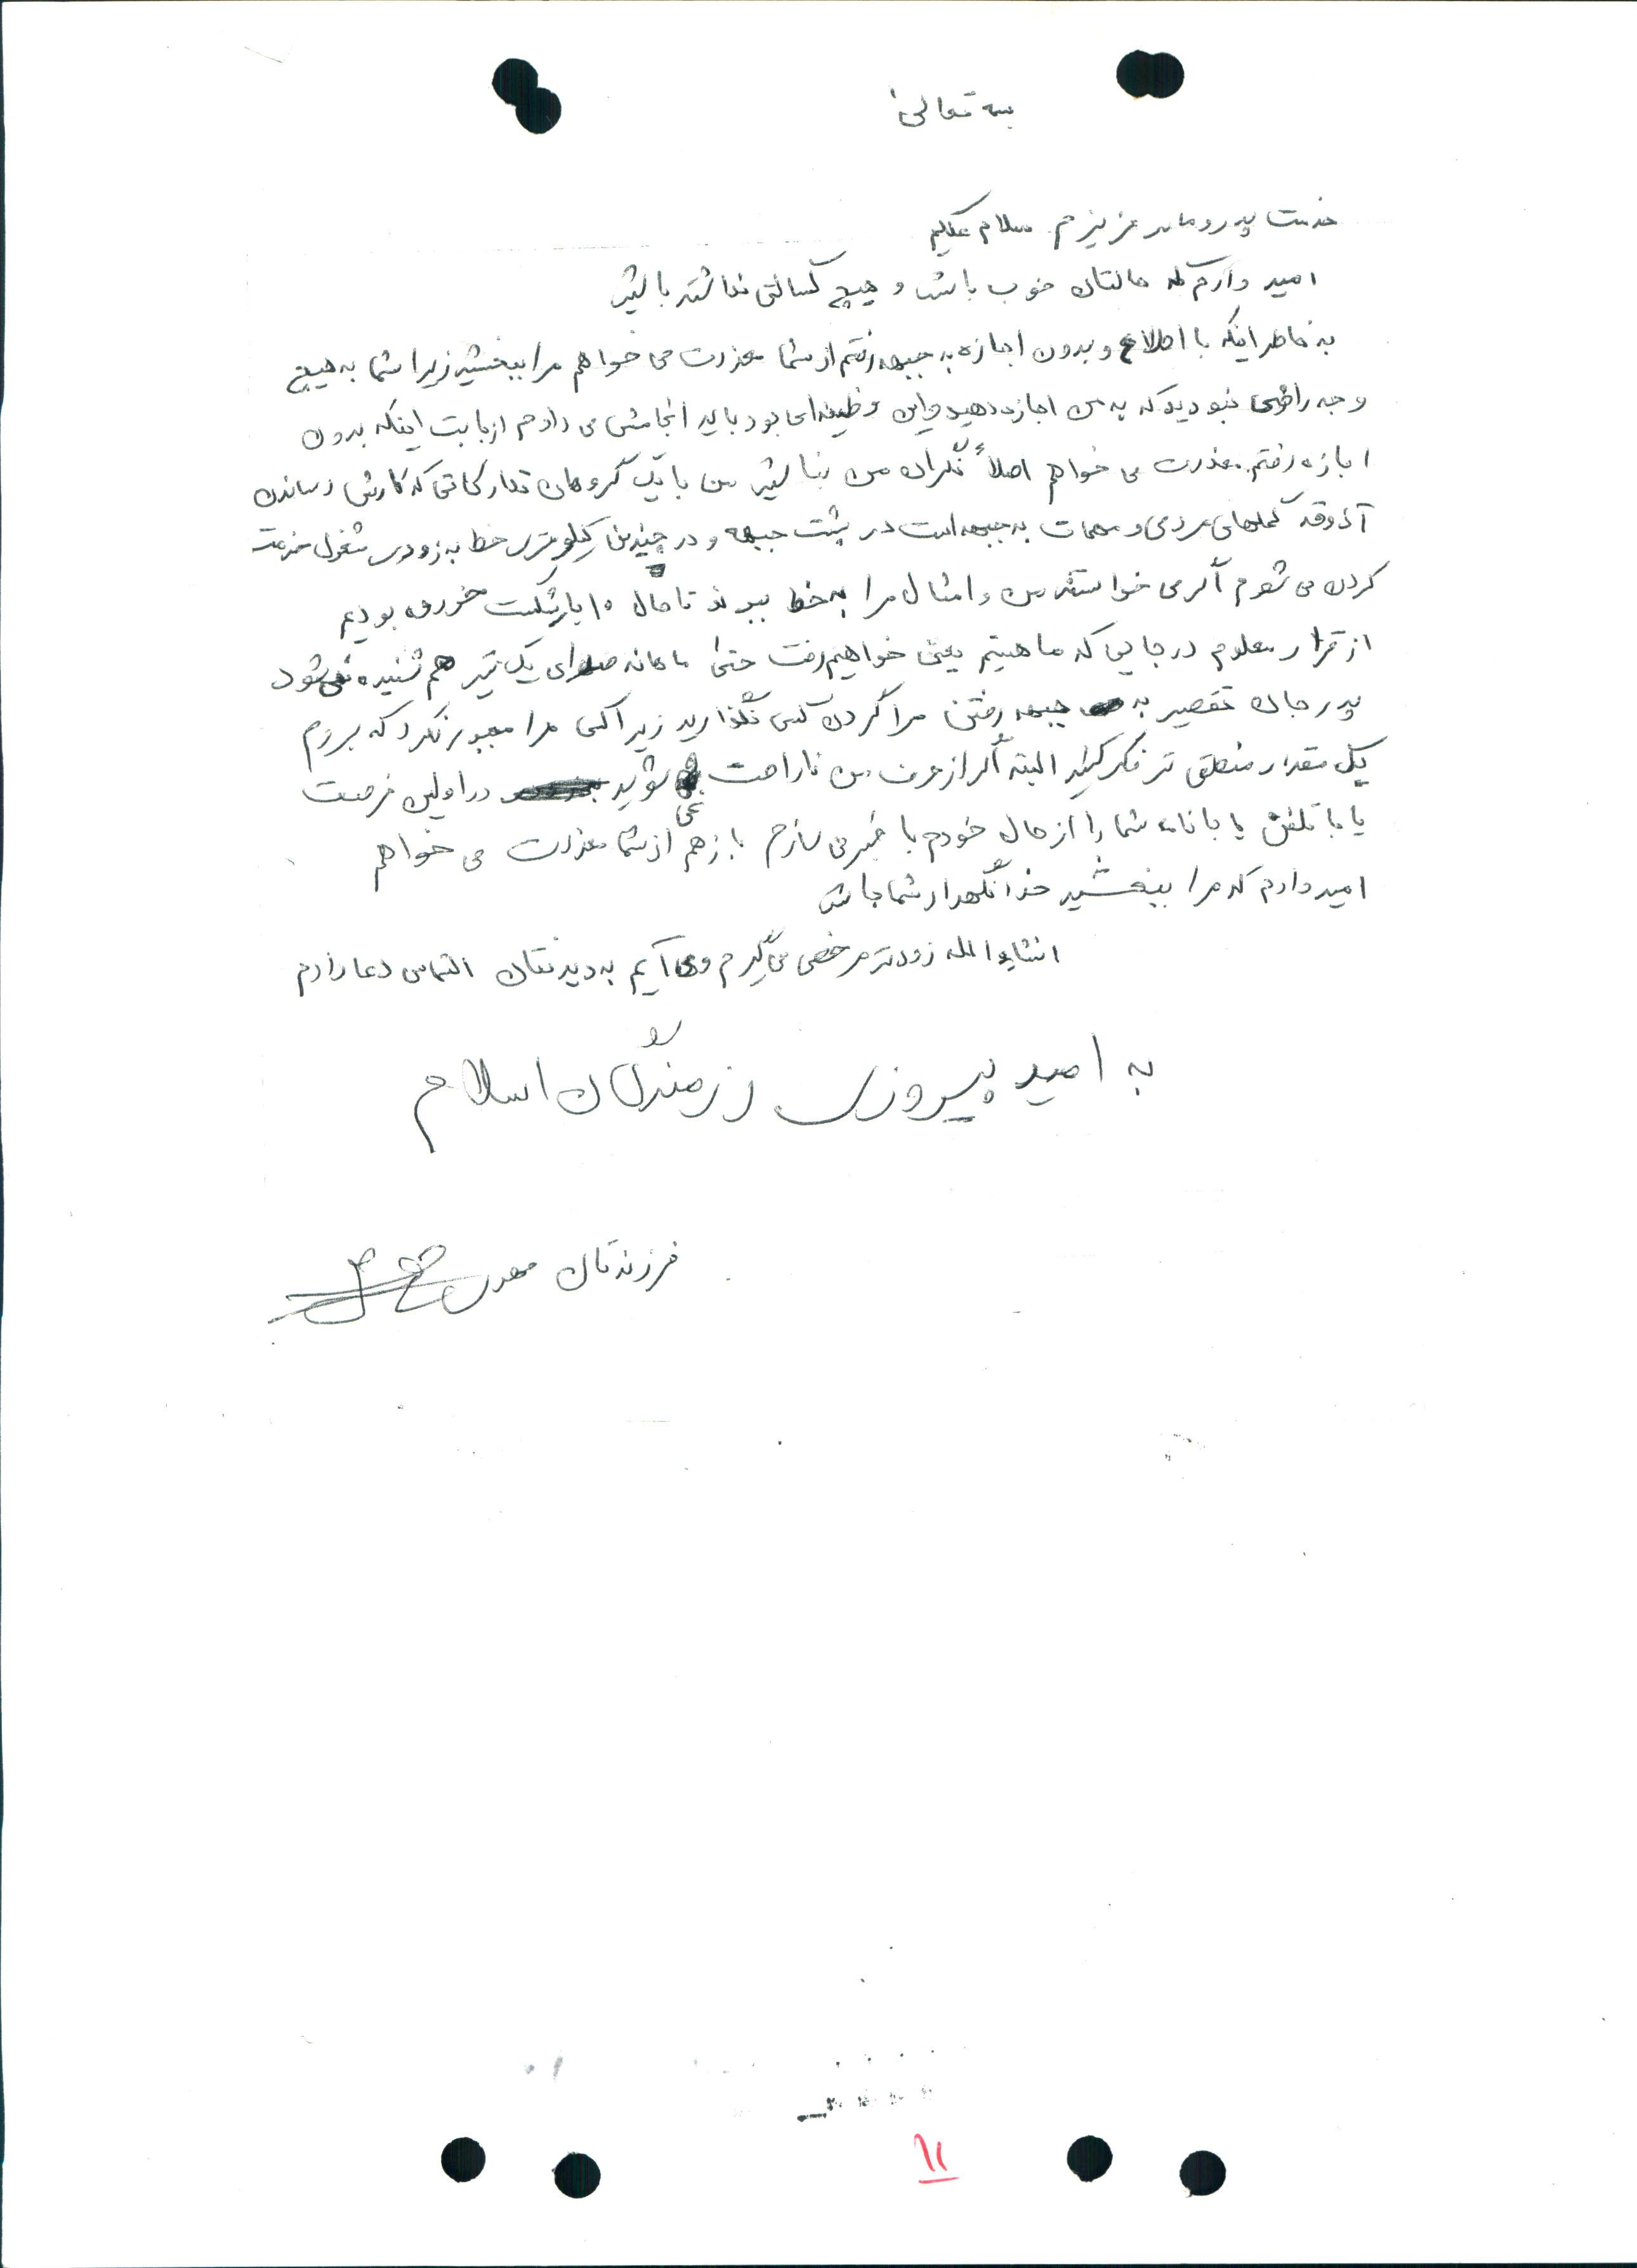 بسمه تعالی
خدمت پدر و مادر عزیزم سلام علیکم
امید وارم که حالتان خوب باشد و هیچ کسالتی نداشته باشید
به خاطر اینکه با اطلاع و بدون اجازه به جبهه رفتم از شما معذرت می خواهم مرا ببخشید زیرا شما به هیچ
وجه راضی نبودید که به من اجازه دهید و این وظیفه ای بود باید انجامش می دادم از بابت اینکه بدون
اجازه رفتم معذرت می خواهم اصلاً نگران من نباشید من با یک گروهان تدارکاتی که کارش رساندن
آذوقه کمکهای مردمی و مهمات به جبهه است در پشت جبهه و در چندین کیلومتری خط به زودی مشغول خدمت
کردن می شوم اگر می خواستند من و امثال مرا به خط ببرند تا حال ۱۰ بار شکست خورده بودیم
از قرار معلوم در جایی که ما هستیم یعنی خواهیم رفت حتی ماهانه صدای یک تیر هم شنیده نمی شود
پدر جان تقصیر به جبهه رفتن مرا گردن کسی نگذارید زیرا کسی مرا مجبور نکرد که بروم
یک مقدار منطقی تر فکر کنید البته اگر از حرف من ناراحت نمی شوید در اولین فرصت
یا با تلفن یا با نامه شما را از حال خودم با خبر می سازم باز هم از شما معذرت می خواهم
امیدوارم که مرا ببخشید خدا نگهدار شما باشد
انشاءالله زودتر مرخصی می گیرم و می آیم به دیدنتان التماس دعا دارم
به امید پیروزی رزمندگان اسلام
فرزندتان مهدی
۱۱